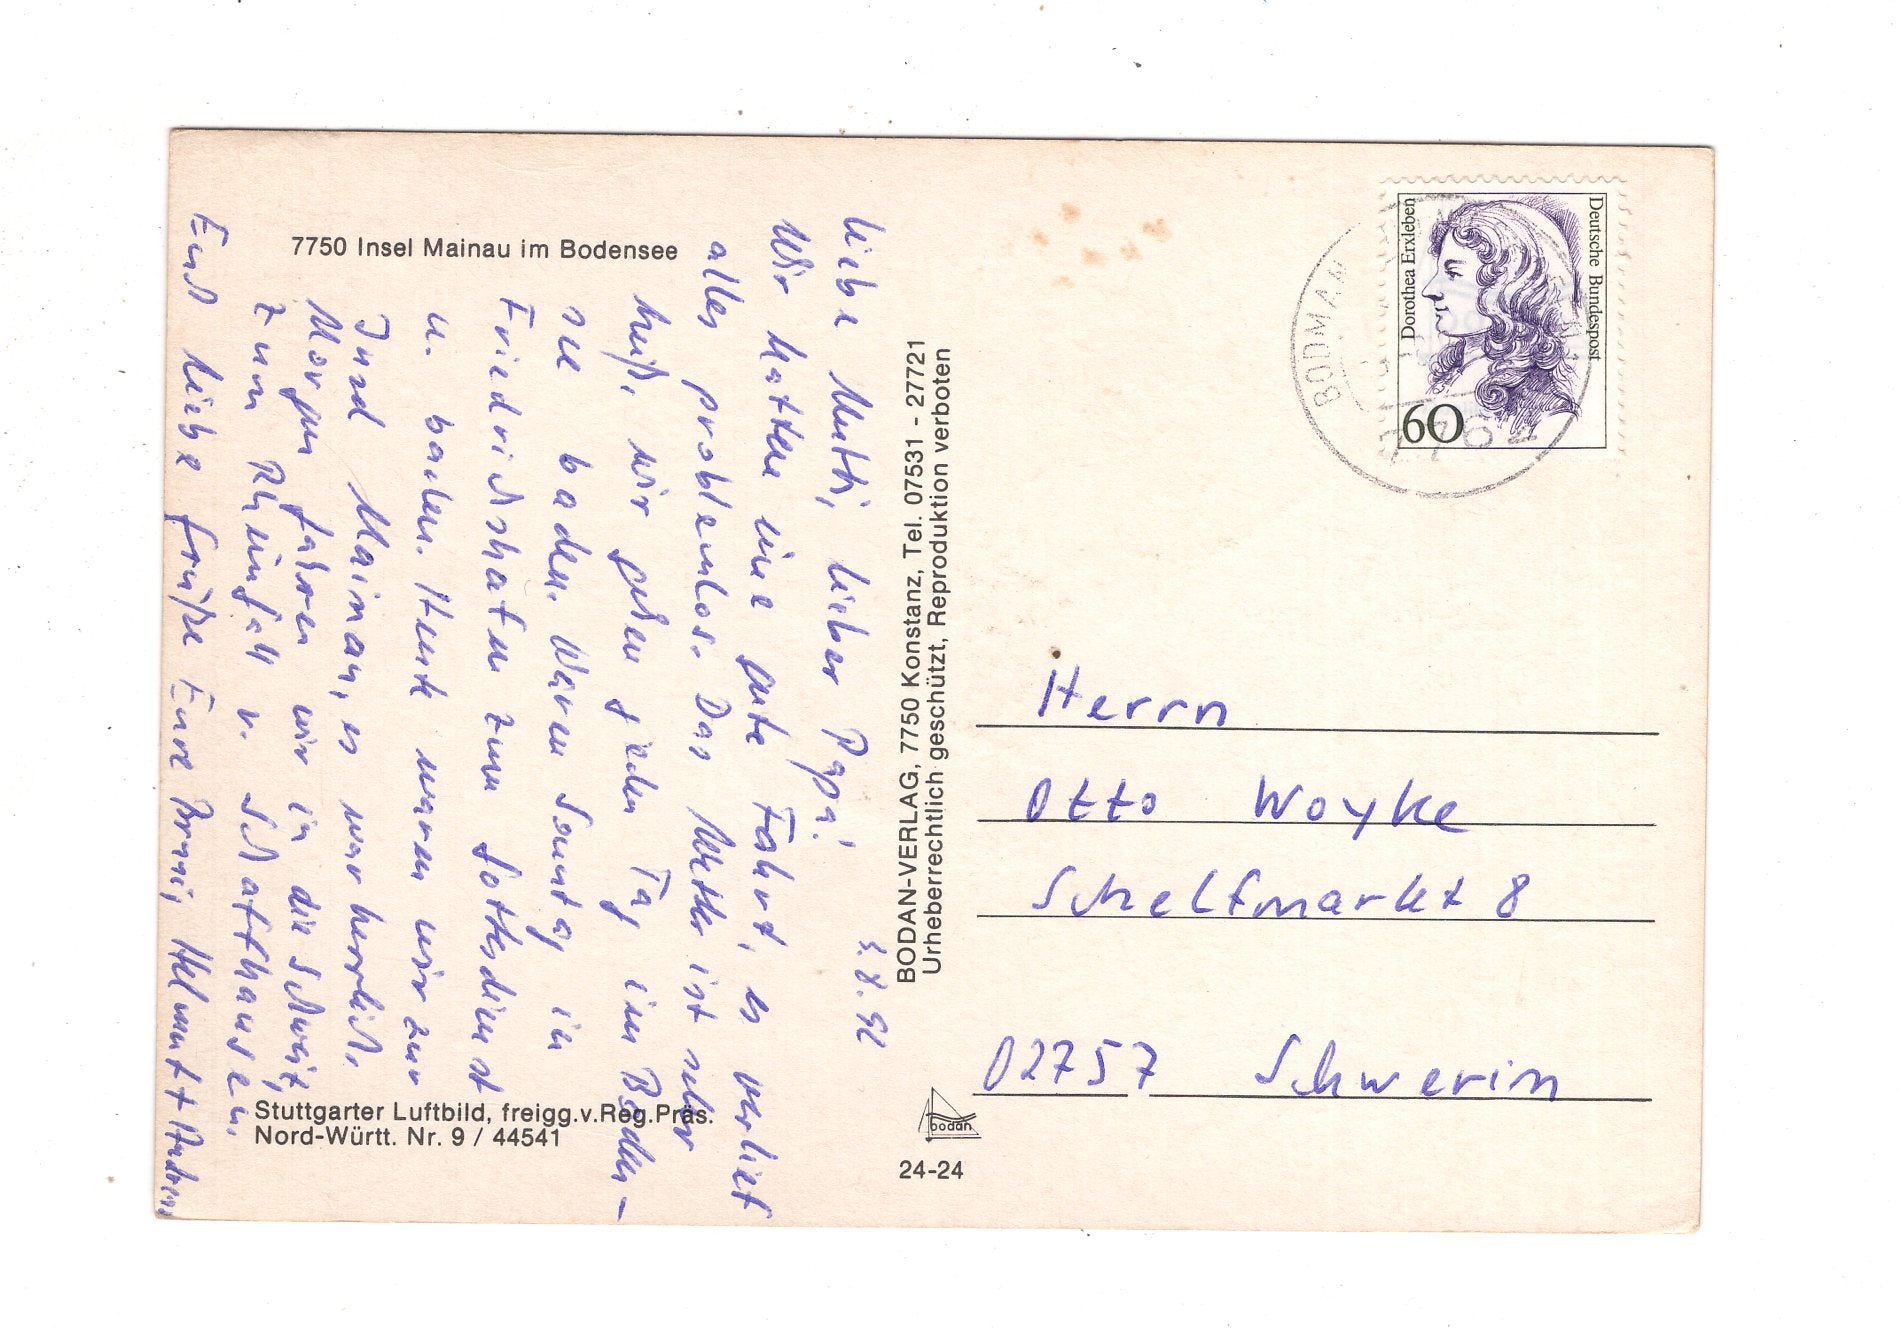 7750 Insel Mainau im Bodensee
5.8.92
Liebe Mutti, lieber Papa!
Wir hatten eine gute Fahrt, es verlief
alles problemlos. Das Wetter ist sehr
heiß, wir gehen jeden Tag im Boden-
see baden. Waren Sonntag in
Friedrichshafen zum Gottesdienst
u. baden. Heute waren wir zur
Insel Mainau, es war herrlich.
Morgen fahren wir in die Schweiz,
zum Rheinfall v. Schaffhausen.
Es grüßen Euch
Stuttgarter Luftbild, freigg.v.Reg.Präs.
Nord-Württ. Nr. 9 / 44541
BODAN-VERLAG, 7750 Konstanz, Tel. 07531 - 27721
Urheberrechtlich geschützt, Reproduktion verboten
bodan
24-24
Deutsche Bundespost
Dorothea Erxleben
60
BODMAN
Herrn
Otto Woyke
Schelfmarkt 8
02757 Schwerin